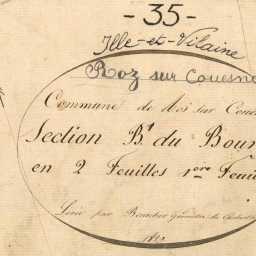 - 35 -
Ille-et-Vilaine
Roz sur Couesno
Commune de Roi sur Coues
Section B.t du Bour
en 2 Feuilles 1ere Feuil
Levé par Géomètre du Cadastre